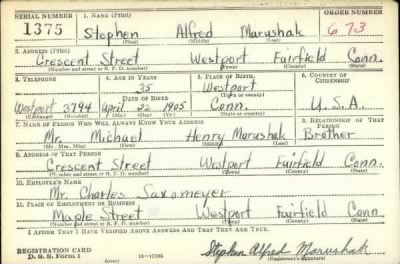 SERIAL NUMBER 1. NAME (Print) ORDER NUMBER
1375 Stephen Alfred Marushak 673
(First) (Middle) (Last)
2. ADDRESS (Print)
Crescent Street Westport Fairfield Conn.
(Number and street or R. F. D. number) (Town) (County) (State)
3. TELEPHONE 4. AGE IN YEARS 5. PLACE OF BIRTH 6. COUNTRY OF CITIZENSHIP
35 Westport
DATE OF BIRTH (Town or county)
Westport 3794 April 22 1905 Conn. U.S.A.
(Exchange) (Number) (Mo.) (Day) (Yr.) (State or country)
7. NAME OF PERSON WHO WILL ALWAYS KNOW YOUR ADDRESS 8. RELATIONSHIP OF THAT PERSON
Mr. Michael Henry Marushak Brother
(Mr., Mrs., Miss) (First) (Middle) (Last)
9. ADDRESS OF THAT PERSON
Crescent Street Westport Fairfield Conn.
(Number and street or R. F. D. number) (Town) (County) (State)
10. EMPLOYER'S NAME
Mr. Charles Saxomeyer
11. PLACE OF EMPLOYMENT OR BUSINESS
Maple Street Westport Fairfield Conn
(Number and street or R. F. D. number) (Town) (County) (State)
I AFFIRM THAT I HAVE VERIFIED ABOVE ANSWERS AND THAT THEY ARE TRUE.
REGISTRATION CARD
D. S. S. Form 1 (over) Stephen Alfred Marushak
(Registrant's signature)